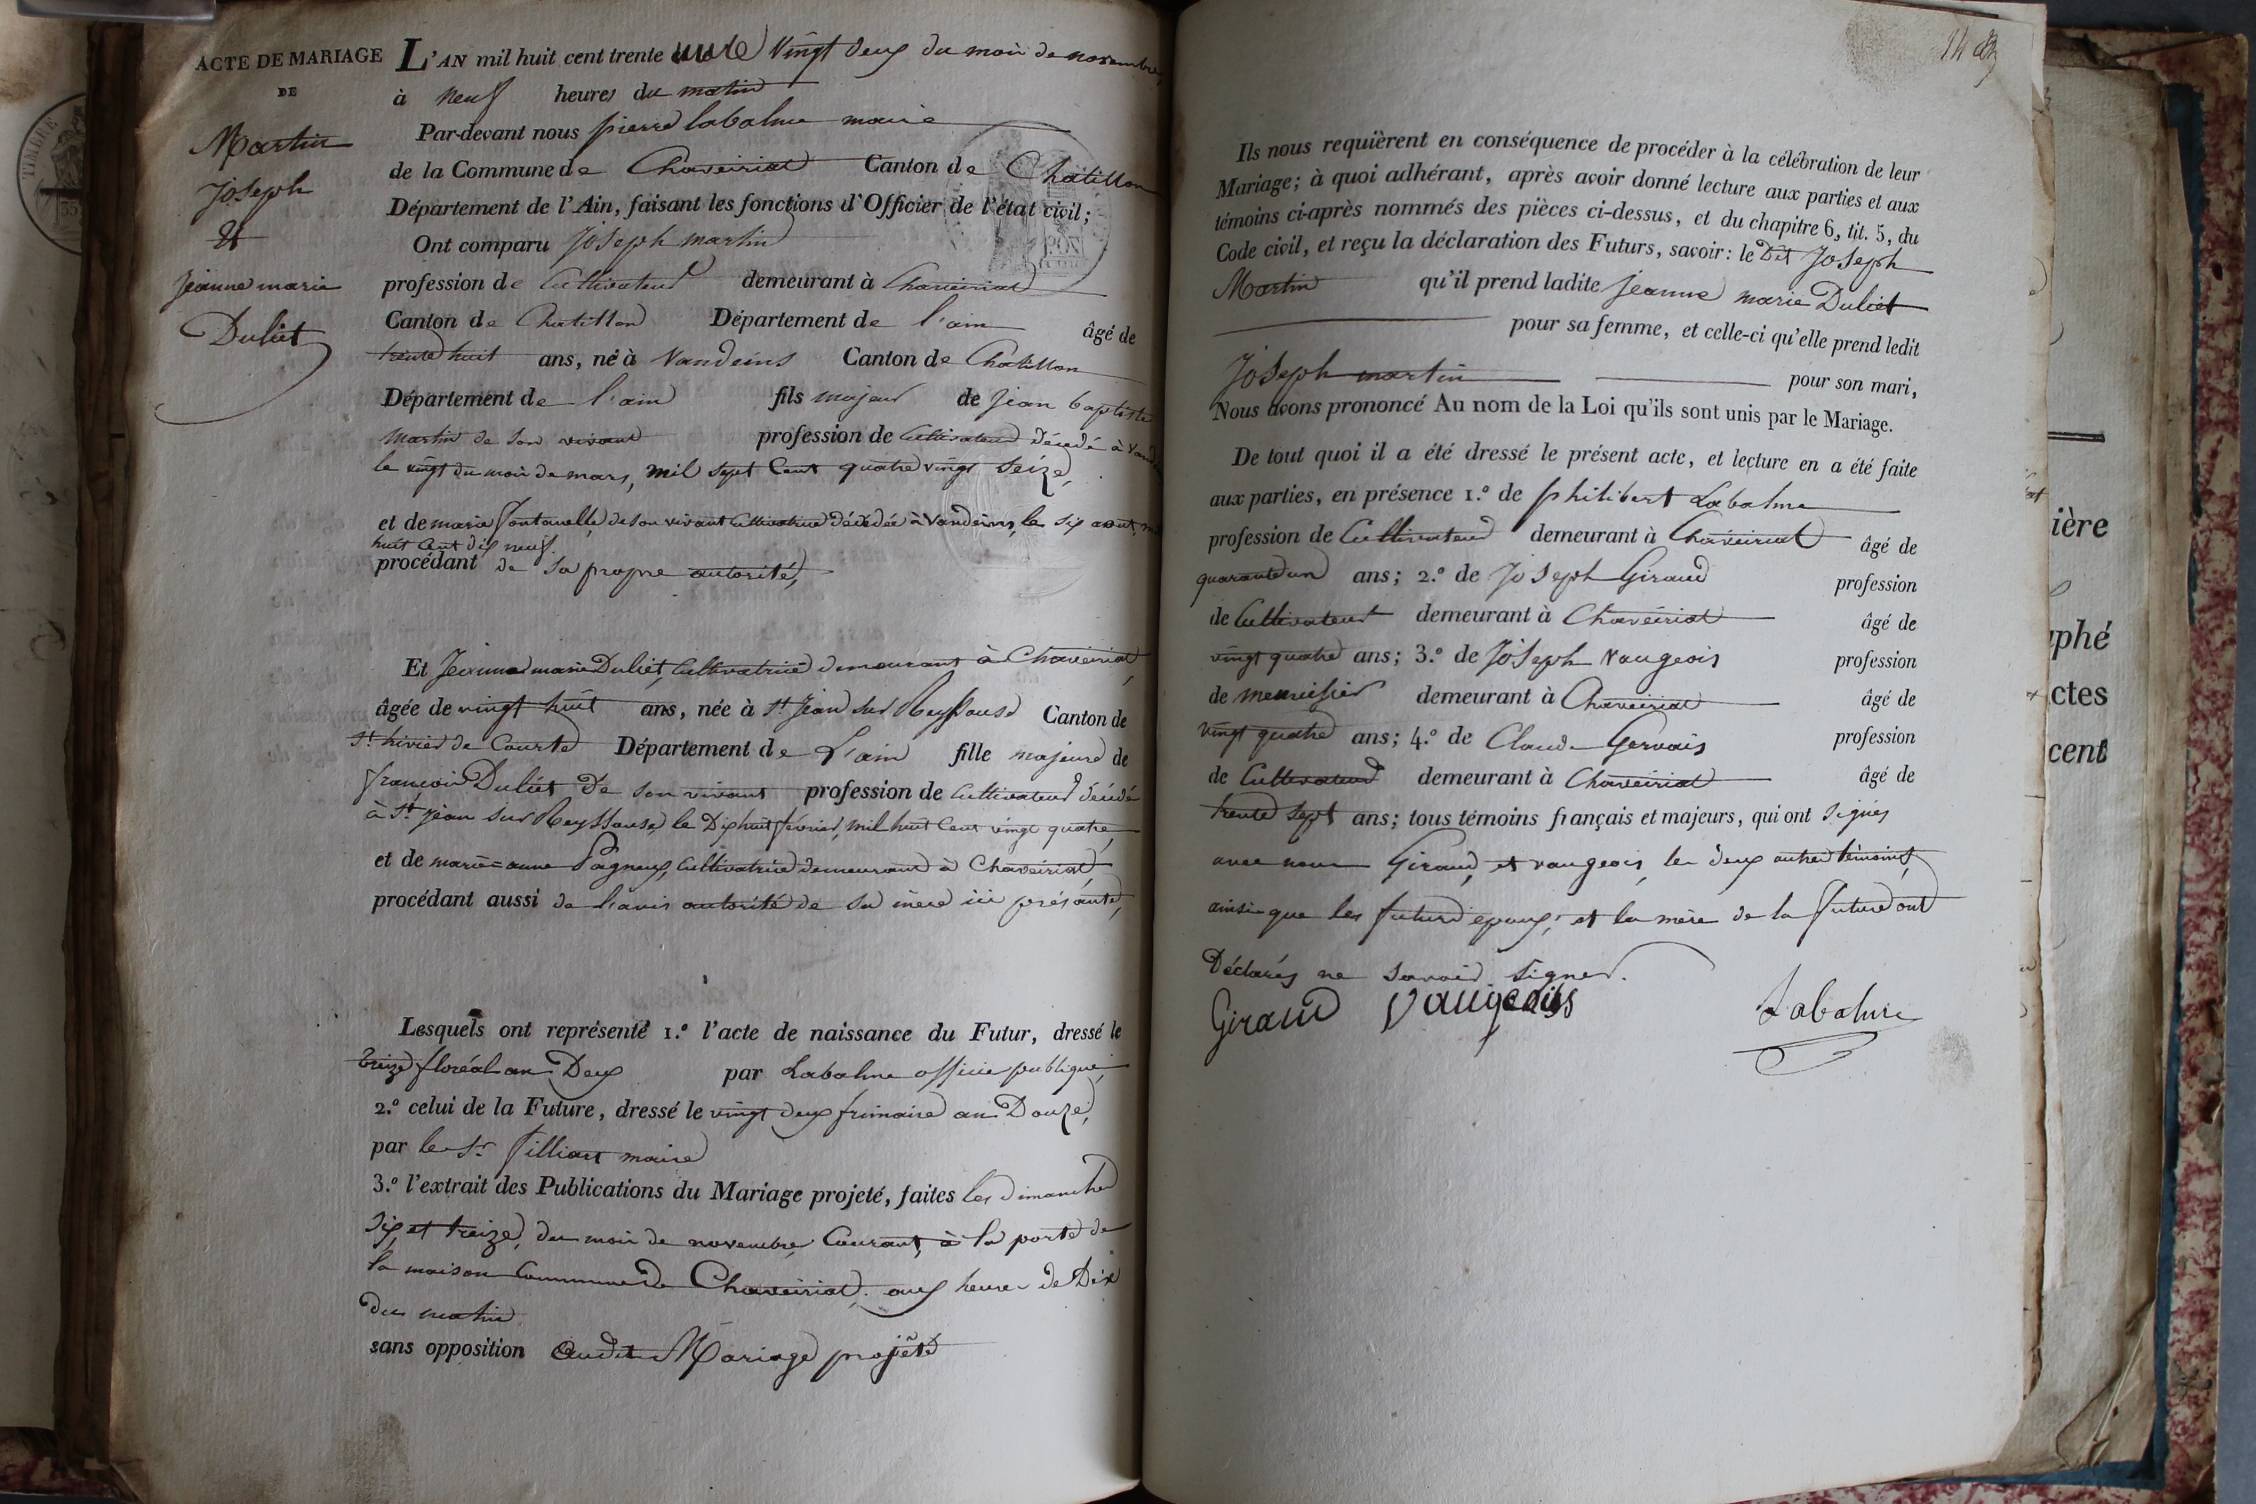 ACTE DE MARIAGE
DE
Martin
Joseph
et
Jeanne marie
Duliet
L'AN mil huit cent trente un le vingt deux du mois de novembre
à neuf heures du matin
Par-devant nous pierre labalme maire
de la Commune de Chaveiriat Canton de Chatillon
Département de l'Ain, faisant les fonctions d'Officier de l'état civil;
Ont comparu Joseph martin
profession de Cultivateur demeurant à Chaveiriat
Canton de Chatillon Département de l'ain âgé de
trente huit ans, né à Vandeins Canton de Chatillon
Département de l'ain fils majeur de jean baptiste
martin de son vivant profession de Cultivateur décédé à
le vingt du mois de mars, mil sept Cent quatre vingt seize,
et de marie fontanelle, de son vivant Cultivatrice décédée à Vandeins, le six aout,
huit Cent dix neuf.
procédant de sa propre autorité,
Et Jeanne marie Duliet, Cultivatrice demeurant à Chaveiriat,
âgée de vingt huit ans, née à St jean sur Reyssouse Canton de
St trivier de Courte Département de L'ain fille majeure de
françois Duliet de son vivant profession de Cultivateur décédé
à St jean sur Reyssouse, le Dix huit février, mil huit Cent vingt quatre,
et de marie=anne Pagneux, Cultivatrice demeurant à Chaveiriat,
procédant aussi de l'avis autorité de sa mère ici présante,
Lesquels ont représenté 1.º l'acte de naissance du Futur, dressé le
treize floréal an Deux par Labalme officie publique,
2.º celui de la Future, dressé le vingt deux frimaire an Douze,
par le Sr tilliart maire
3.º l'extrait des Publications du Mariage projeté, faites les dimanches
six, et treize, du mois de novembre Courant, à la porte de
la maison Commune de Chaveiriat, aux heures de Dix
du matin
sans opposition audit Mariage projété
14
Ils nous requièrent en conséquence de procéder à la célébration de leur
Mariage; à quoi adhérant, après avoir donné lecture aux parties et aux
témoins ci-après nommés des pièces ci-dessus, et du chapitre 6, tit. 5, du
Code civil, et reçu la déclaration des Futurs, savoir: le Dit Joseph
Martin qu'il prend ladite jeanne marie Duliet
pour sa femme, et celle-ci qu'elle prend ledit
Joseph martin pour son mari,
Nous avons prononcé Au nom de la Loi qu'ils sont unis par le Mariage.
De tout quoi il a été dressé le présent acte, et lecture en a été faite
aux parties, en présence 1.º de philibert Labalme
profession de Cultivateur demeurant à Chaveiriat âgé de
quarante un ans; 2.º de Joseph Giraud profession
de Cultivateur demeurant à Chaveiriat âgé de
vingt quatre ans; 3.º de Joseph Vaugeois profession
de menuisier demeurant à Chaveiriat âgé de
vingt quatre ans; 4.º de Claude Gervais profession
de Cultivateur demeurant à Chaveiriat âgé de
trente sept ans; tous témoins français et majeurs, qui ont signés
avec nous Giraud, et vaugeois, les deux autres témoins,
ainsi que les futurs epoux, et la mère de la future ont
Déclarés ne savoir signer.
Giraud Vaugeois Labalme
ière
phé
ctes
cent
TIMBRE